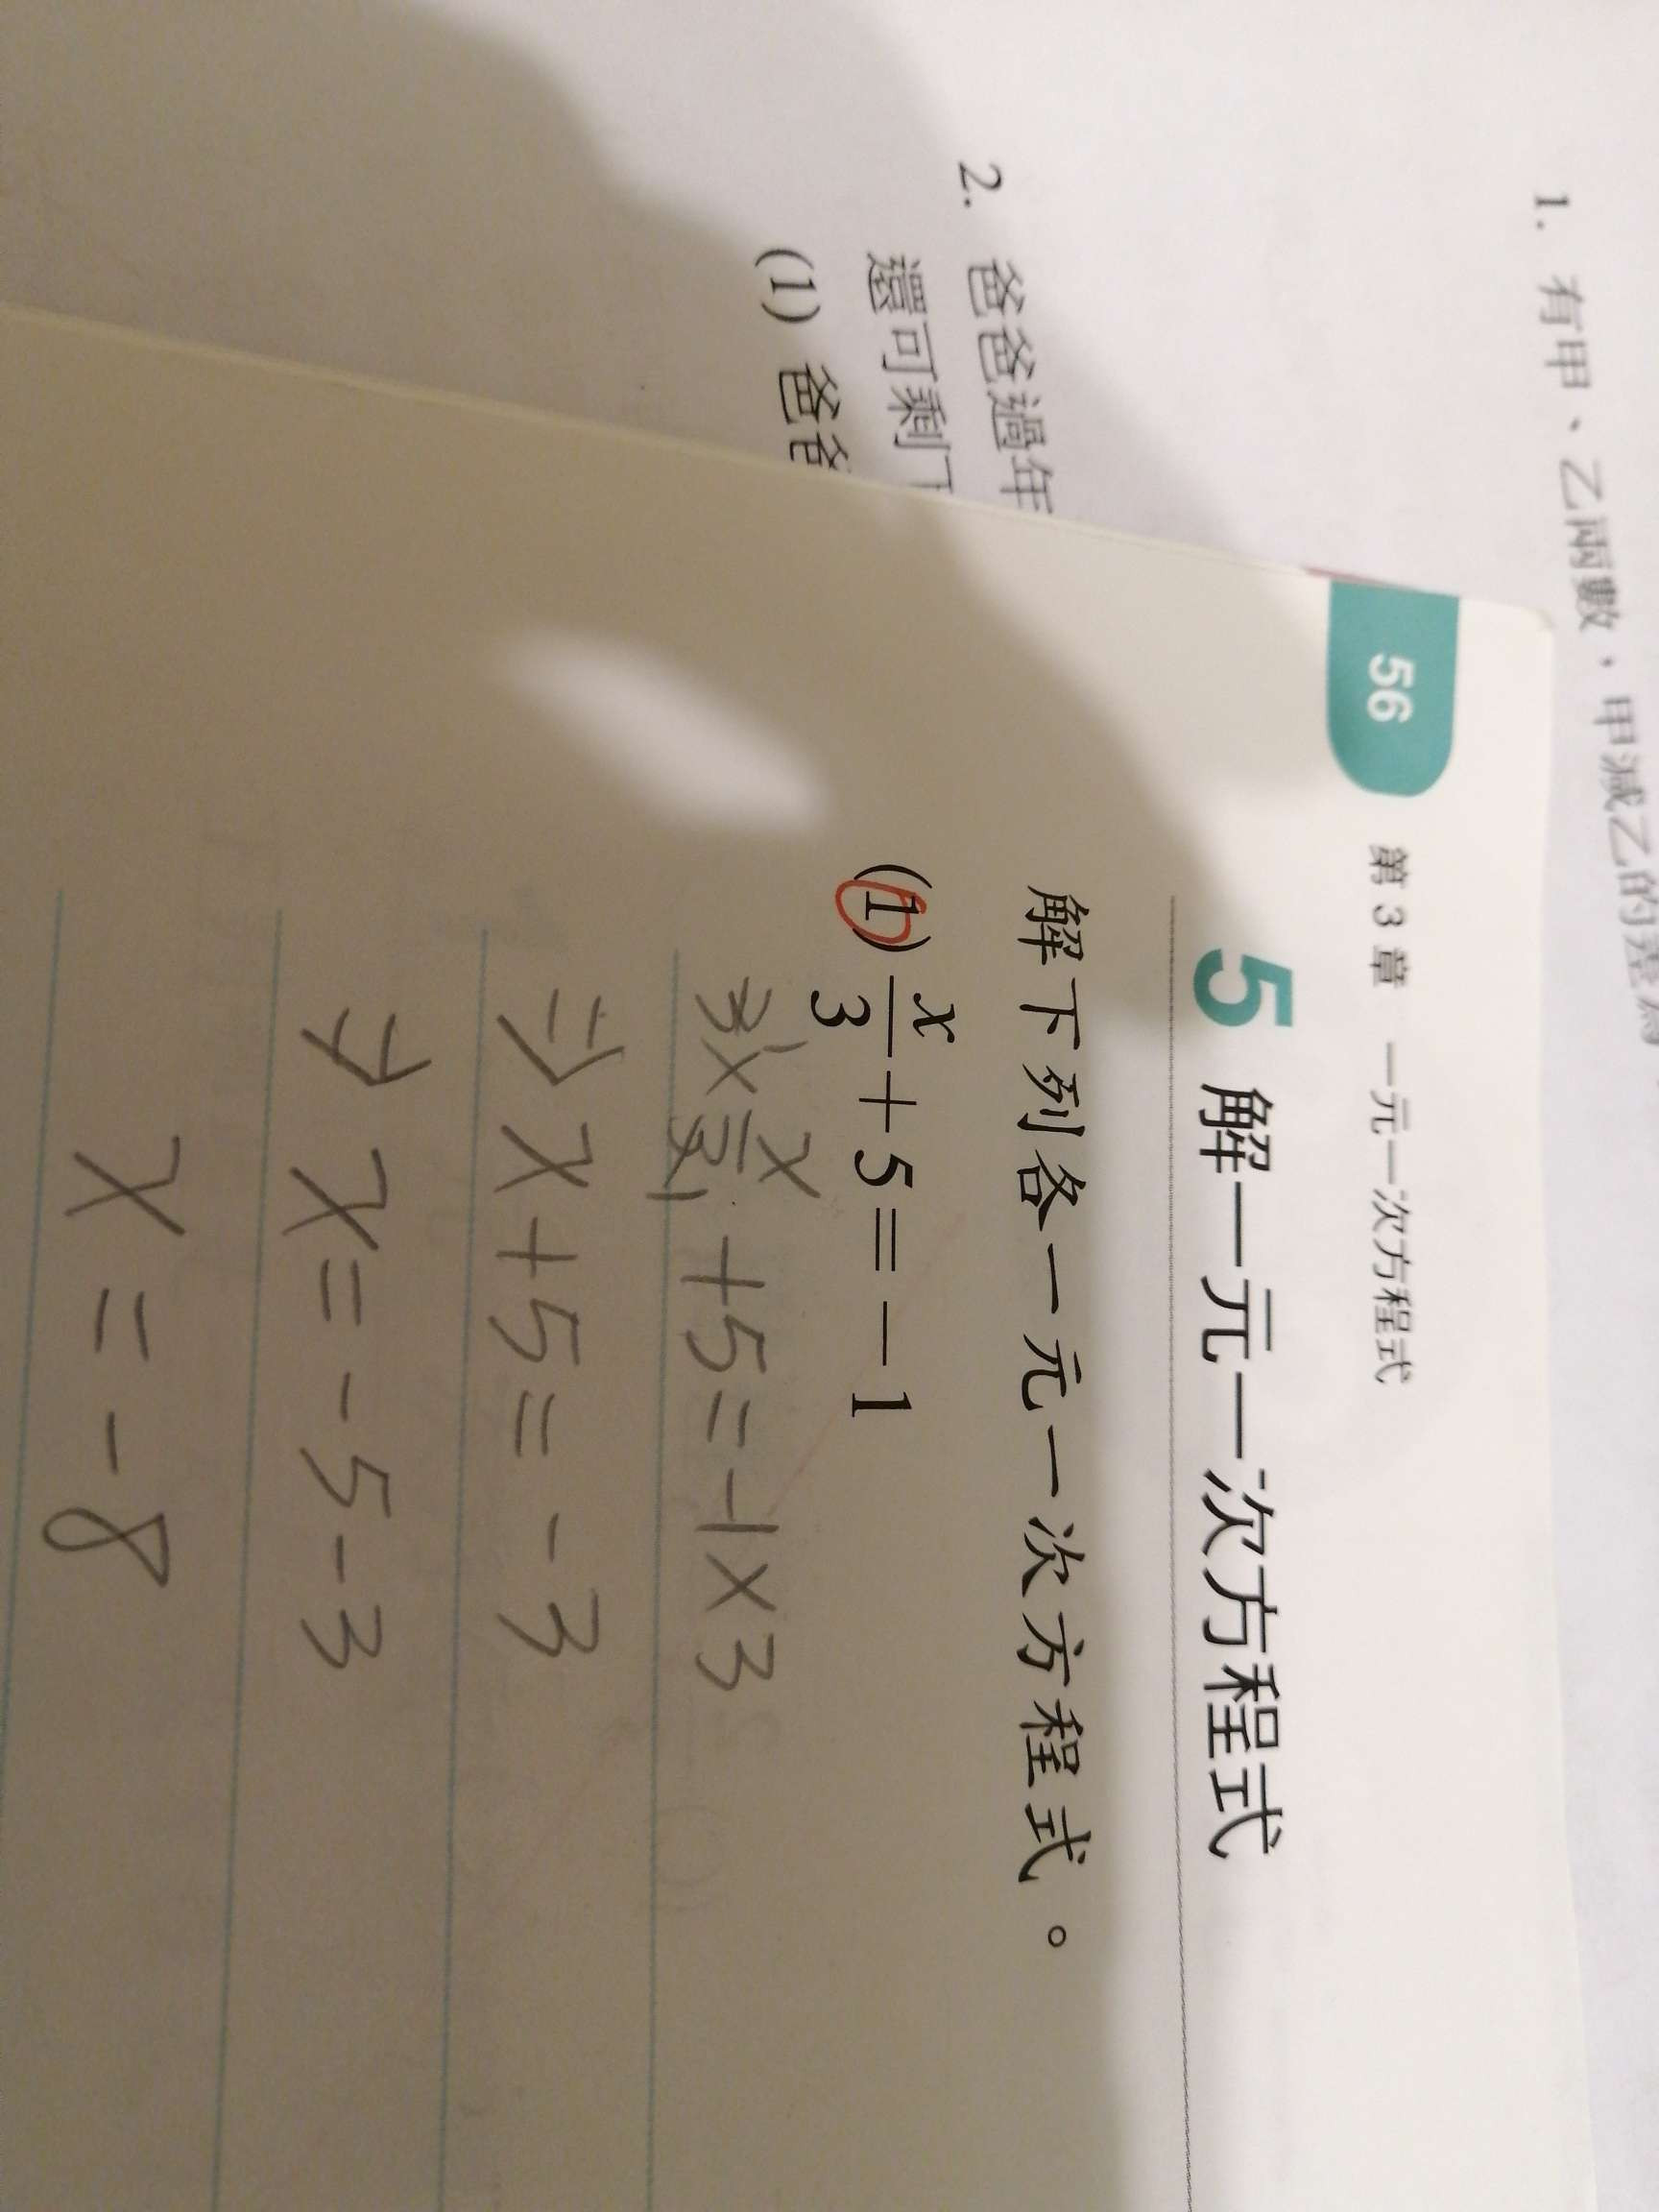 1. 有甲、乙兩數，甲減乙的差為
2. 爸爸過年
還可剩下
(1) 爸爸
56 第 3 章 一元一次方程式
5 解一元一次方程式
解下列各一元一次方程式。
(1) x/3 + 5 = - 1
3 × x/3 + 5 = -1 × 3
⇒ x + 5 = -3
⇒ x = -5 - 3
x = -8